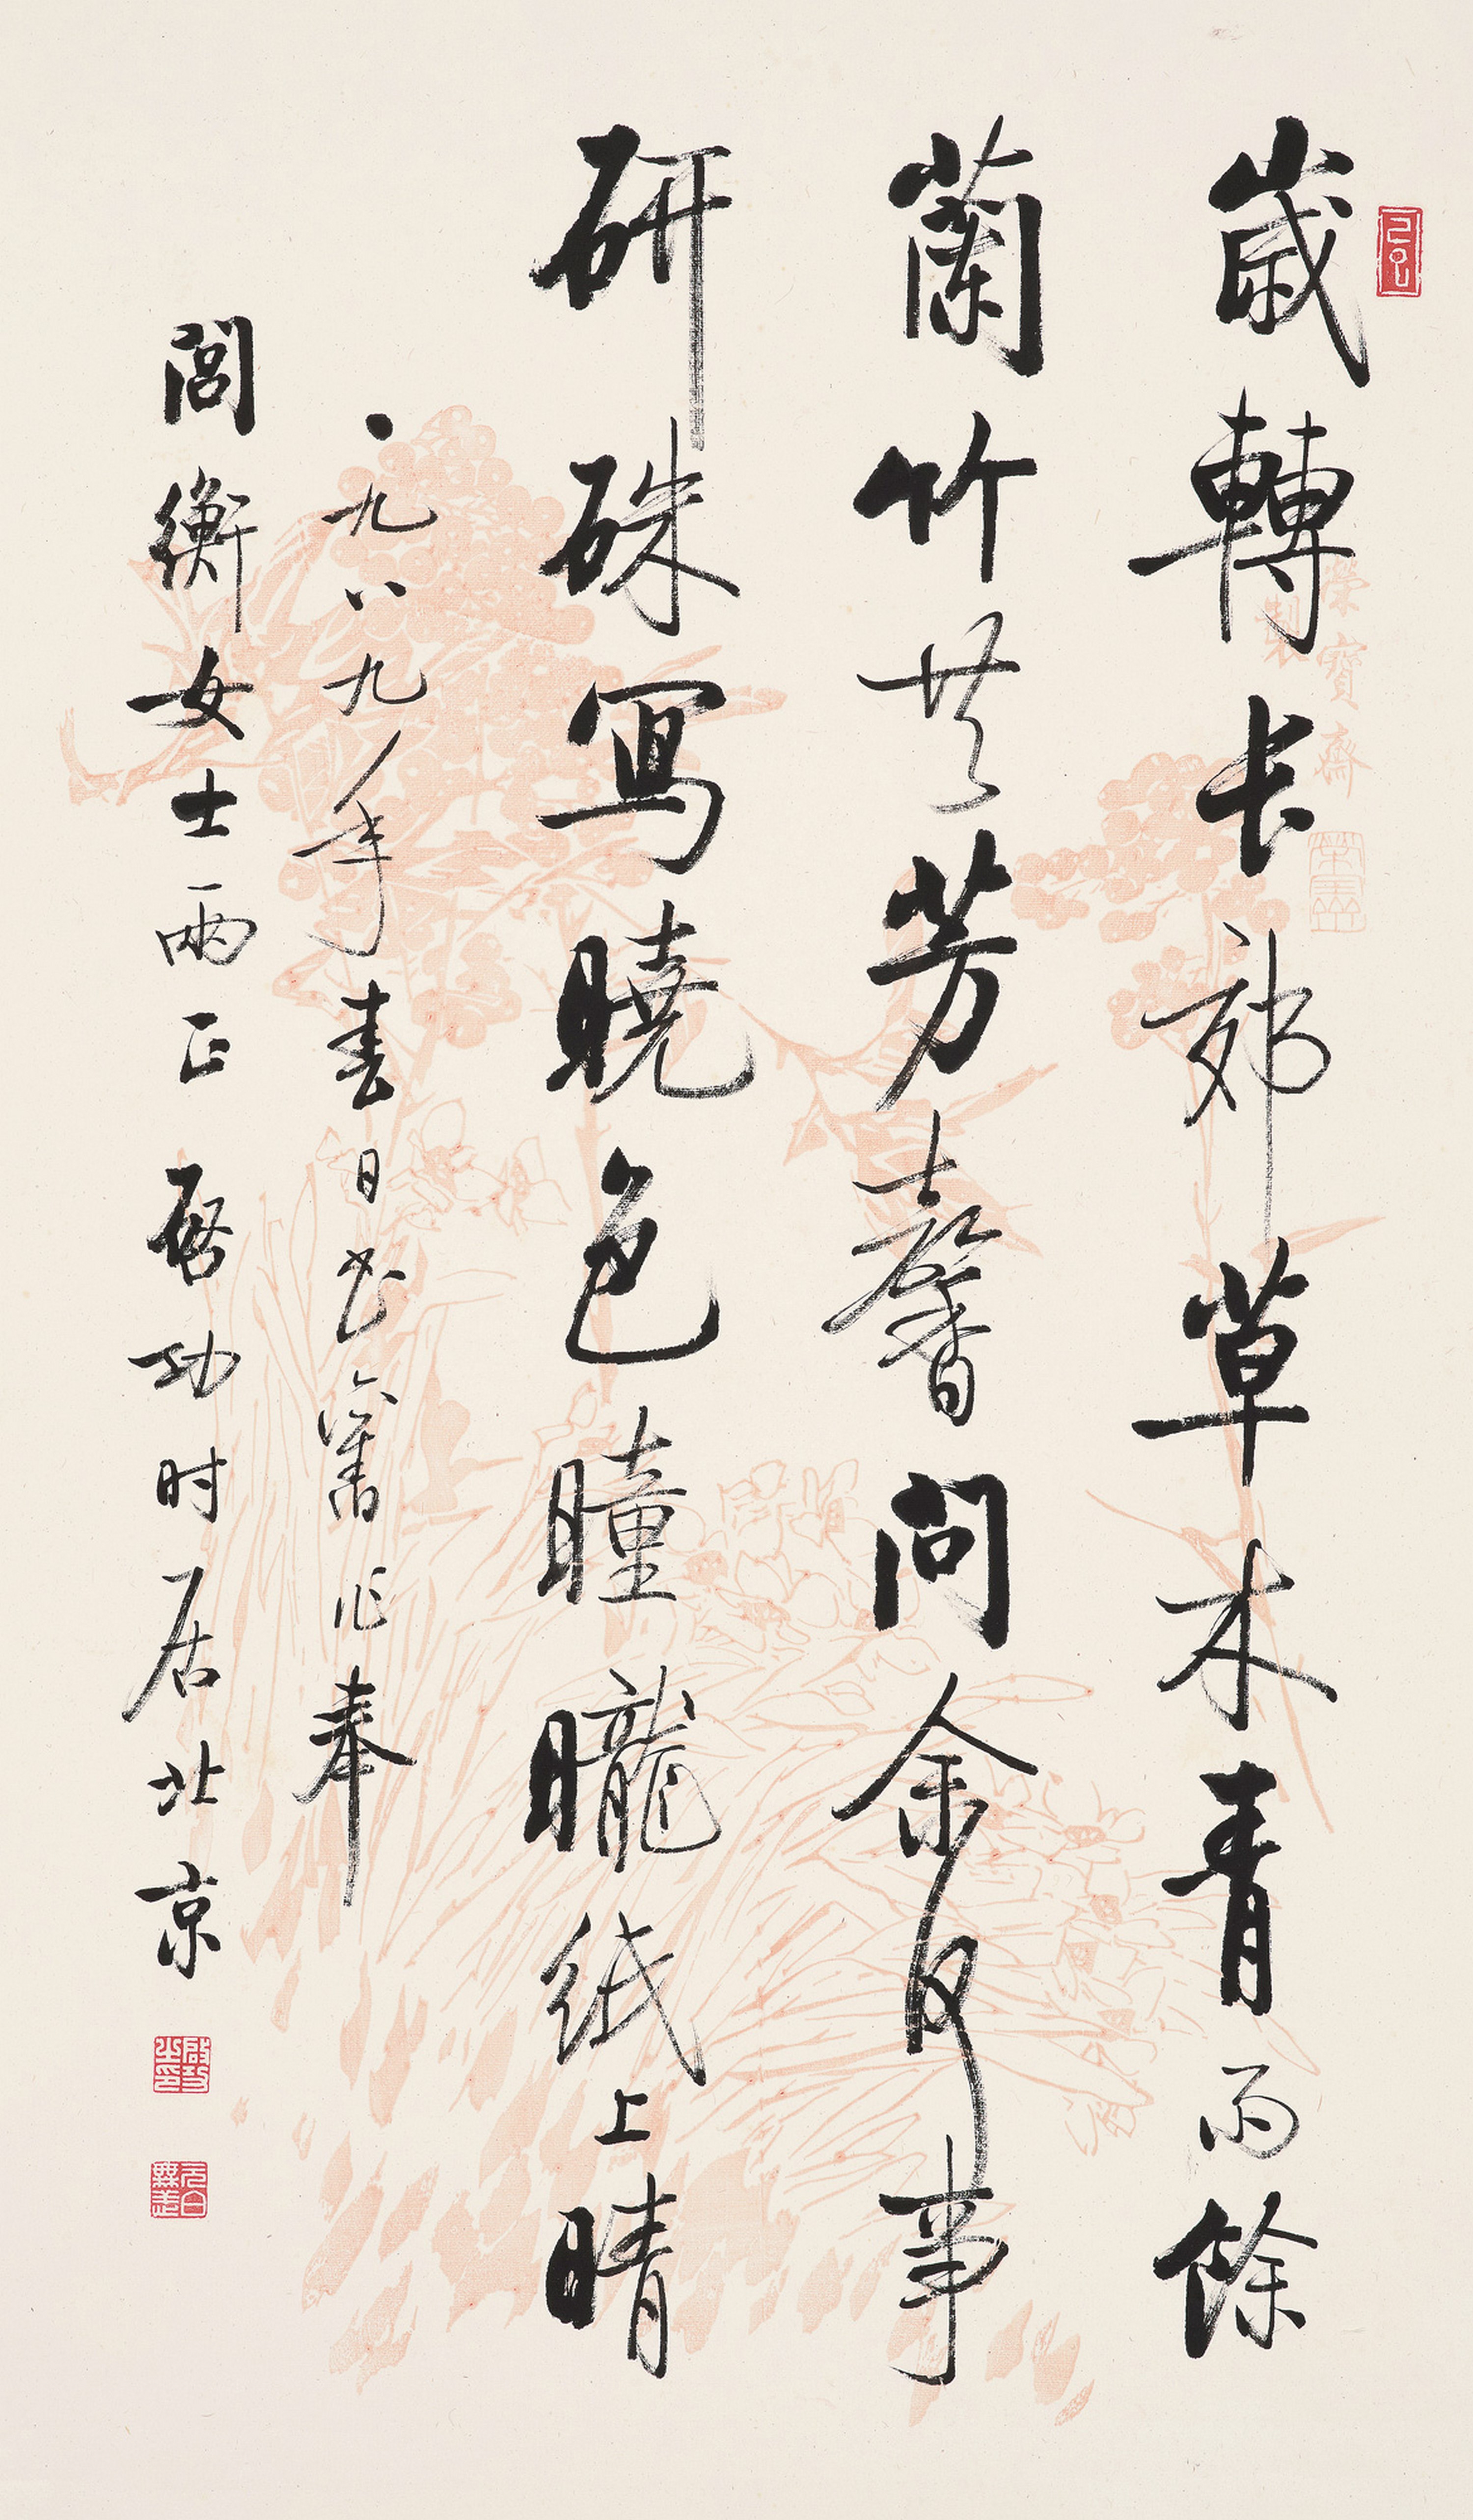 歲轉長郊草木青雨餘
蘭竹共芳馨問余何事
研硃寫曉色曈曨紙上晴
一九八九年春日書舊作奉
閻衡女士兩正 啟功时居北京
榮寶齋
製
啟功之印
元白無恙